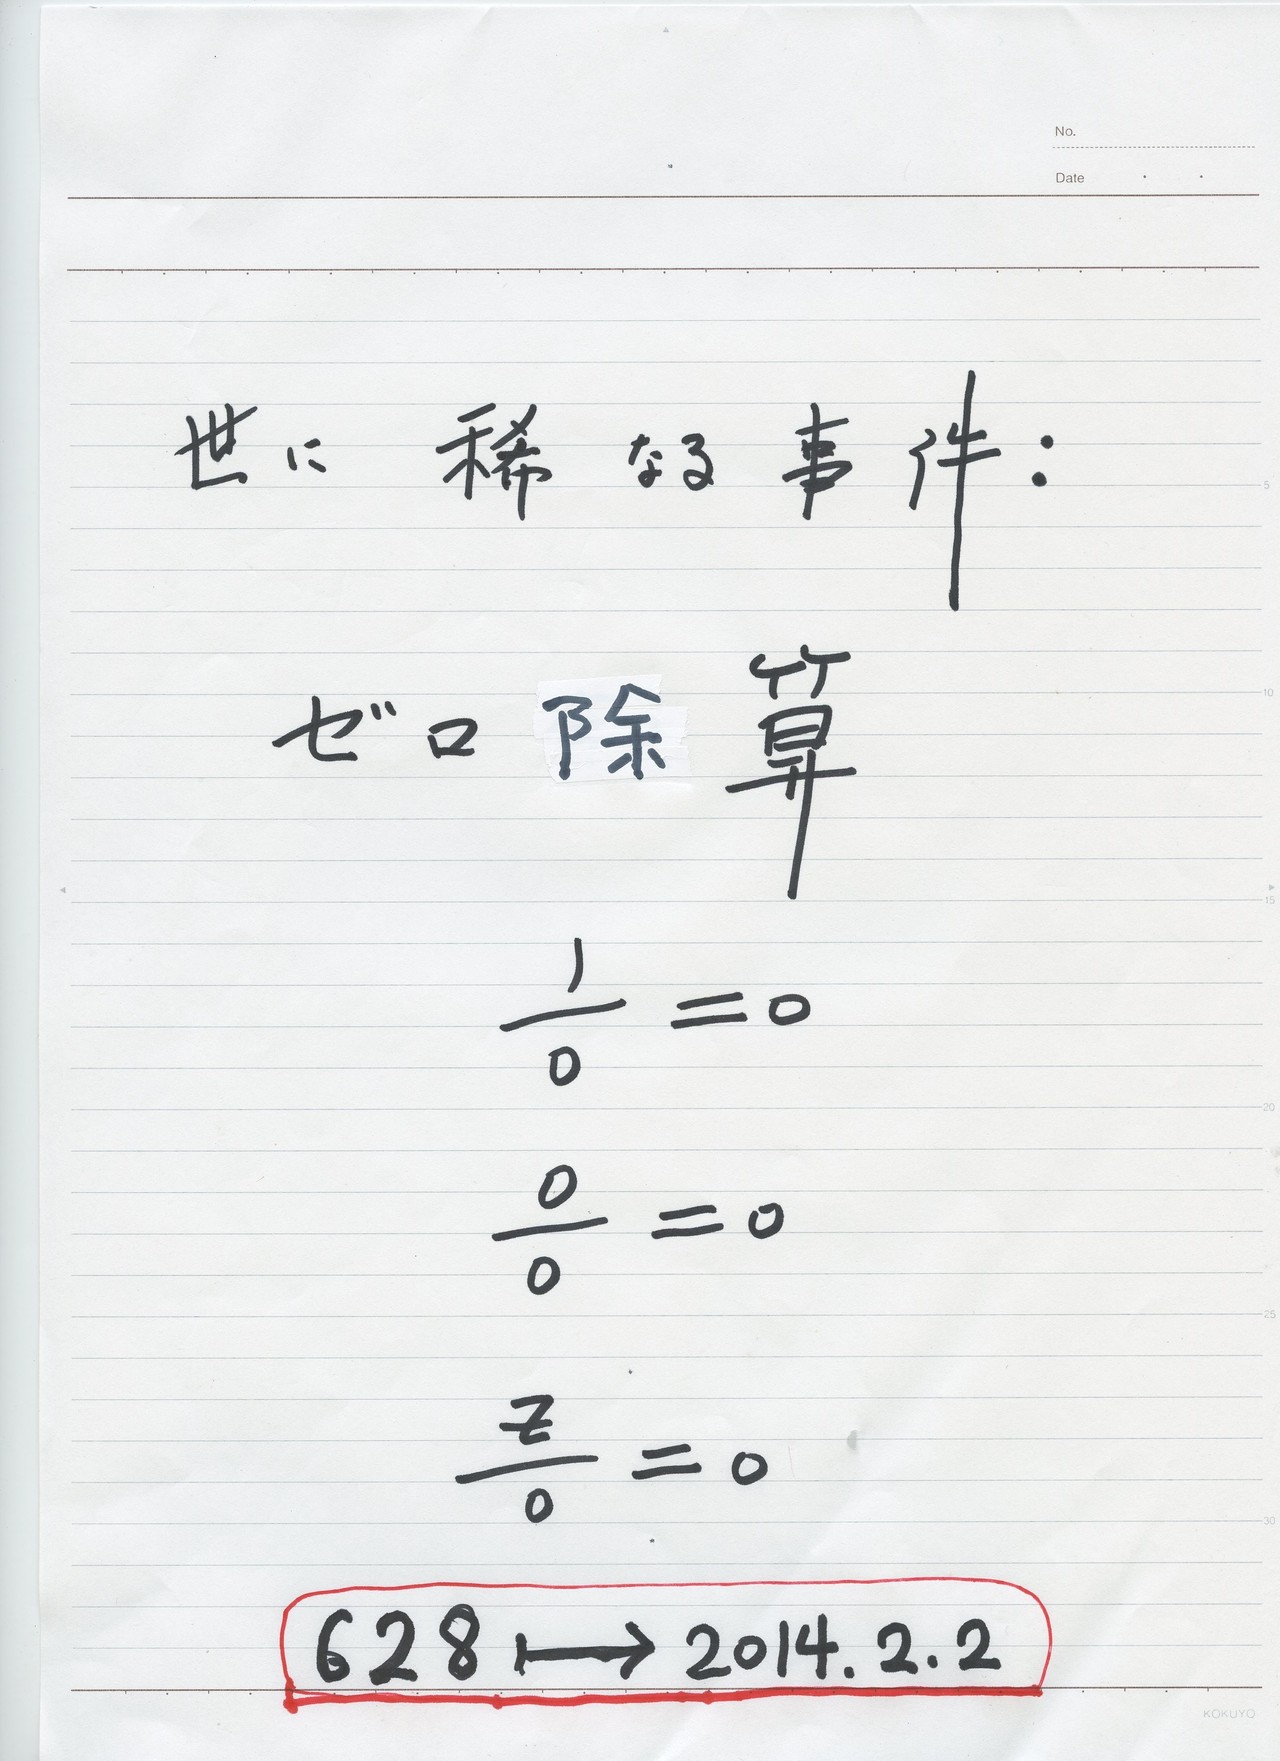 No.
Date
世に 稀なる 事件:
5
ゼロ除算
10
15
1/0 = 0
20
0/0 = 0
25
z/0 = 0
30
628 ↦ 2014.2.2
KOKUYO